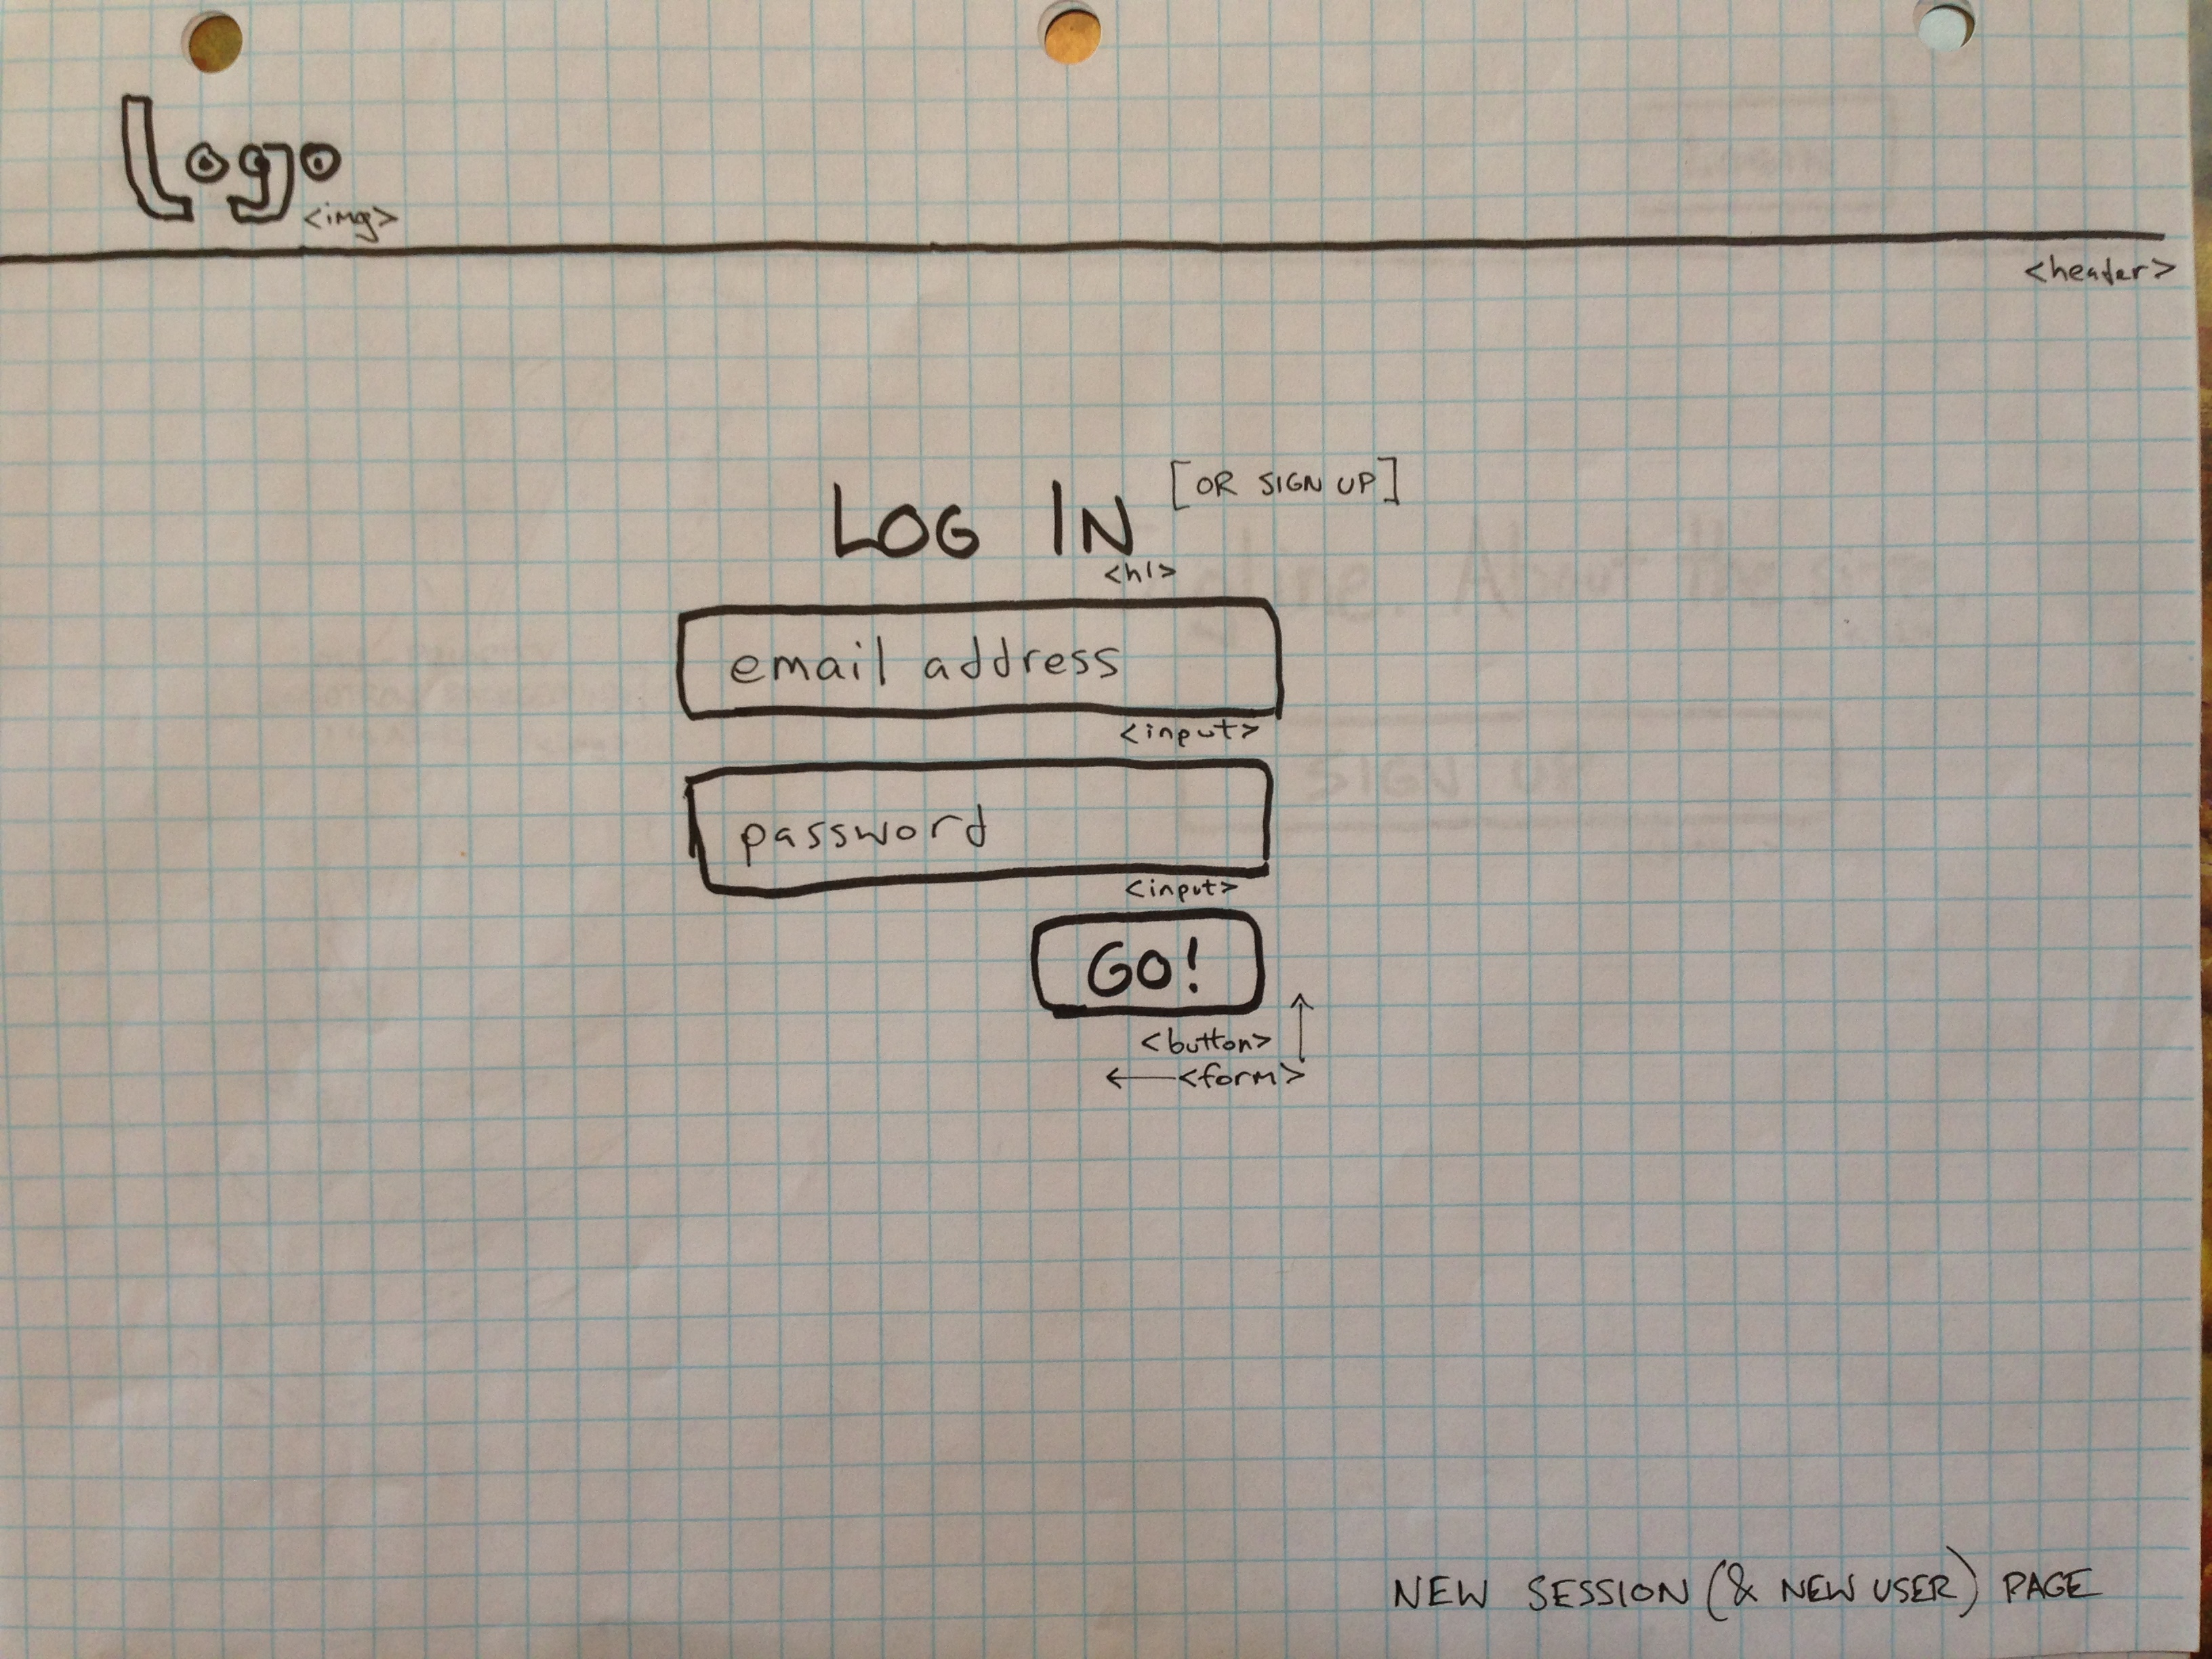 Logo
<img>
<header>
LOG IN [OR SIGN UP]
<h1>
email address
<input>
password
<input>
GO!
<button>
<form>
NEW SESSION (& NEW USER) PAGE